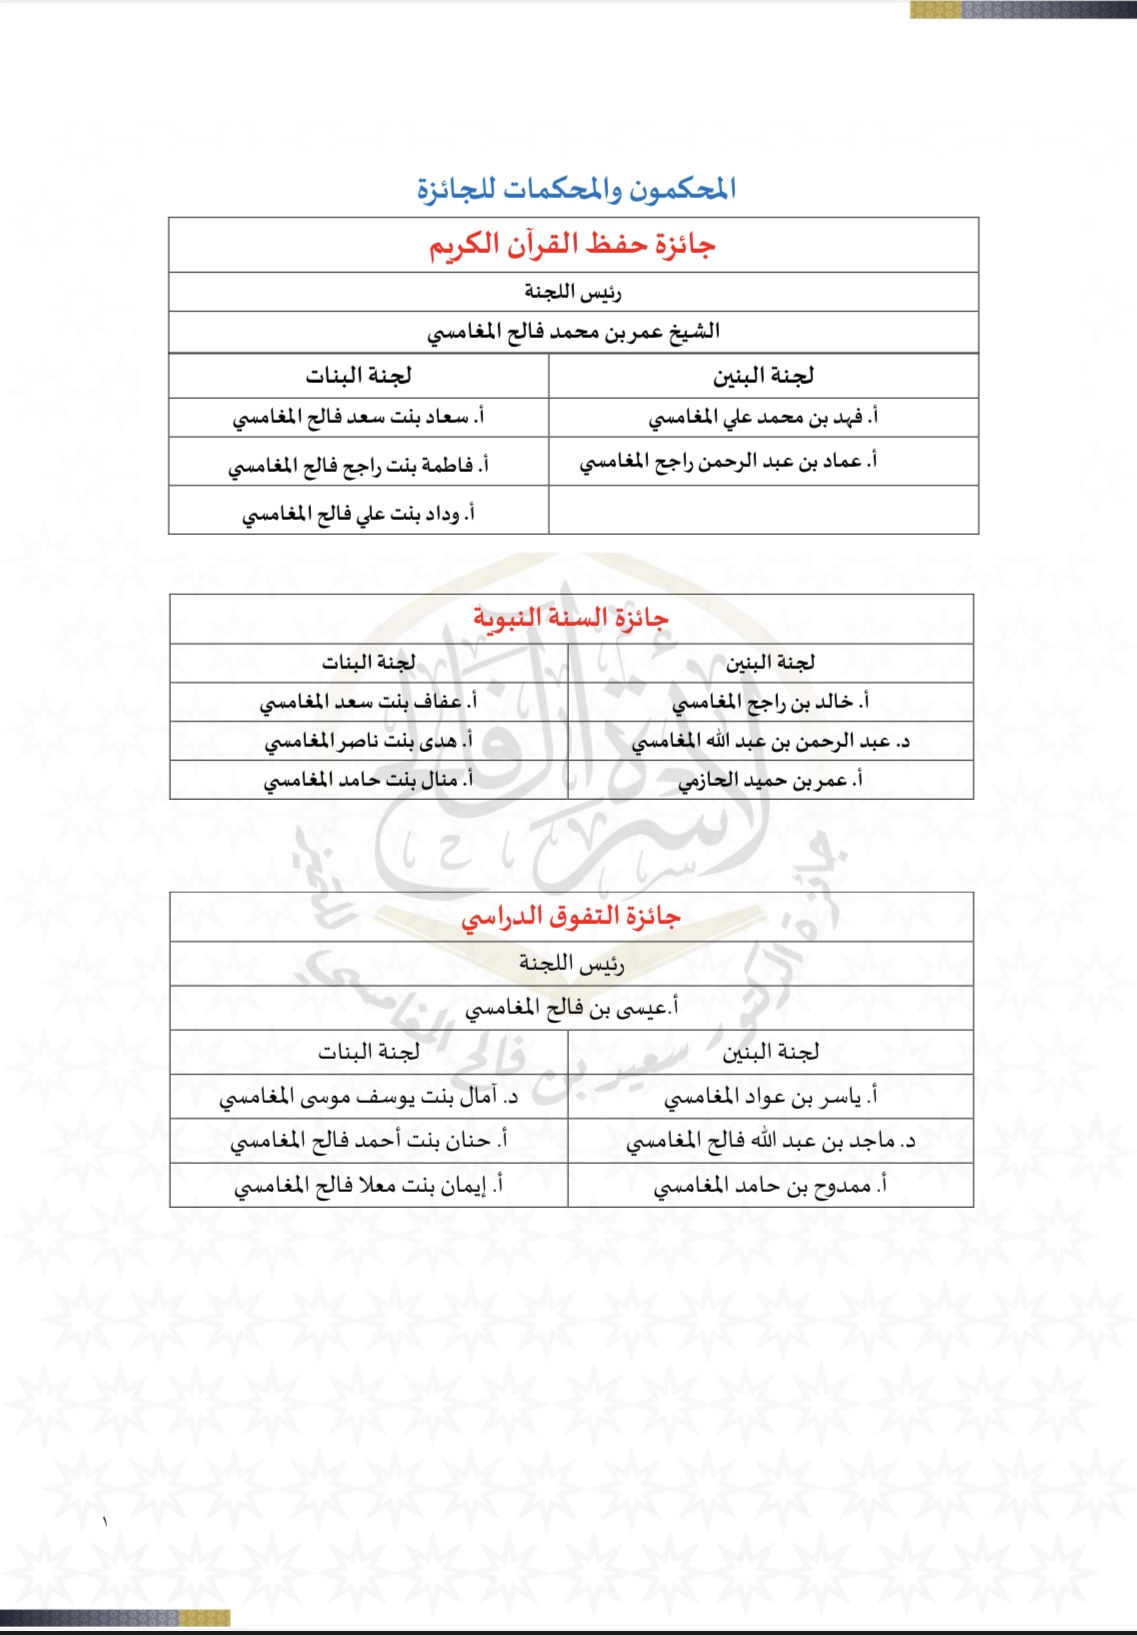 المحكمون والمحكمات للجائزة
جائزة حفظ القرآن الكريم
رئيس اللجنة
الشيخ عمر بن محمد فالح المغامسي
لجنة البنين
لجنة البنات
أ. فهد بن محمد علي المغامسي
أ. سعاد بنت سعد فالح المغامسي
أ. عماد بن عبد الرحمن راجح المغامسي
أ. فاطمة بنت راجح فالح المغامسي
أ. وداد بنت علي فالح المغامسي
جائزة السنة النبوية
لجنة البنين
لجنة البنات
أ. خالد بن راجح المغامسي
أ. عفاف بنت سعد المغامسي
د. عبد الرحمن بن عبد الله المغامسي
أ. هدى بنت ناصر المغامسي
أ. عمر بن حميد الحازمي
أ. منال بنت حامد المغامسي
أسرة الفالح
جائزة الدكتور سعيد بن فالح المغامسي للتميز
جائزة التفوق الدراسي
رئيس اللجنة
أ.عيسى بن فالح المغامسي
لجنة البنين
لجنة البنات
أ. ياسر بن عواد المغامسي
د. آمال بنت يوسف موسى المغامسي
د. ماجد بن عبد الله فالح المغامسي
أ. حنان بنت أحمد فالح المغامسي
أ. ممدوح بن حامد المغامسي
أ. إيمان بنت معلا فالح المغامسي
١